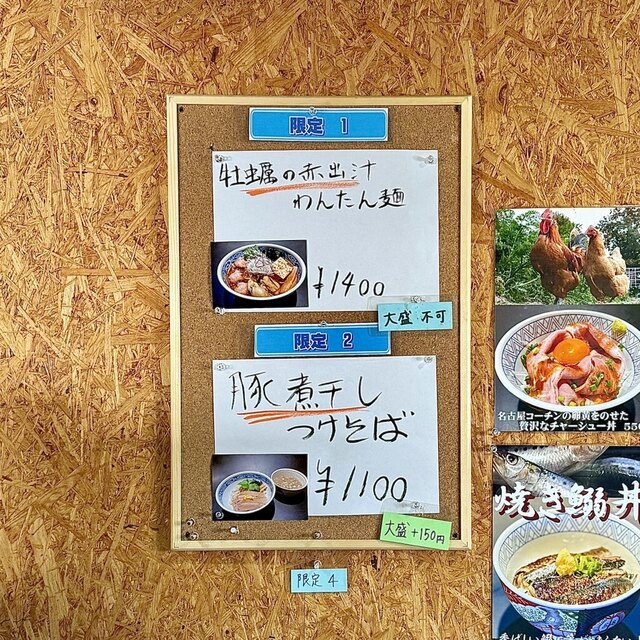 限定 1
牡蠣の赤出汁
わんたん麺
¥1400
大盛 不可
限定 2
豚煮干し
つけそば
¥1100
大盛+150円
限定 4
名古屋コーチンの卵黄をのせた
贅沢なチャーシュー丼 550
焼き鰯丼